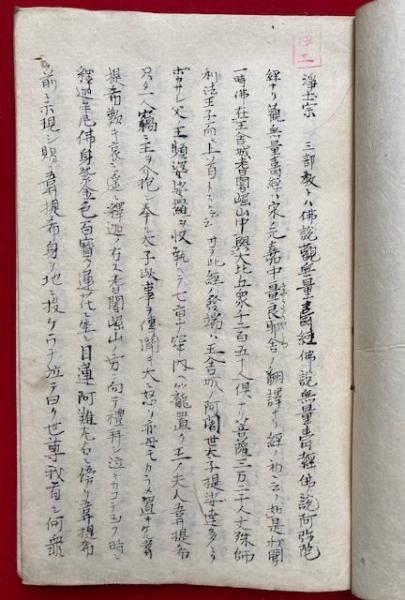 浄土宗 三部教トハ佛説觀無量壽經佛説無量壽經佛説阿弥陀
經ナリ觀無量壽經ハ宋元嘉中畺良耶舎ノ翻譯ナリ經ノ初ニ云ク如是我聞
一時佛在王舎城耆闍崛山中與大比丘衆千二百五十人倶ナリ菩薩三万二千人文殊師
利法王子而上首トス 此經ノ發端ハ王舎城ノ阿闍世太子提婆達多ニ
父ノ王頻婆娑羅ヲ收執ヘテ七重ノ室内ニ籠置ク王ノ夫人韋提希
只夕一人竊ニ王ヲ介抱シ奉ル太子此事ヲ傳聞キ大ニ怒リ母モ置キケル韋
提希歎キ哀ミ遥ニ釋迦ノ在ス耆闍崛山ノ方ニ向テ禮拜シ泣 時ニ
釋迦牟尼佛身紫金色百寳ノ蓮花ニ坐シ目連阿難左右ニ侍リ韋提希
前ニ示現シ賜韋提希身ヲ地ニ投ケウチ泣テ曰ク世尊我昔シ何罪